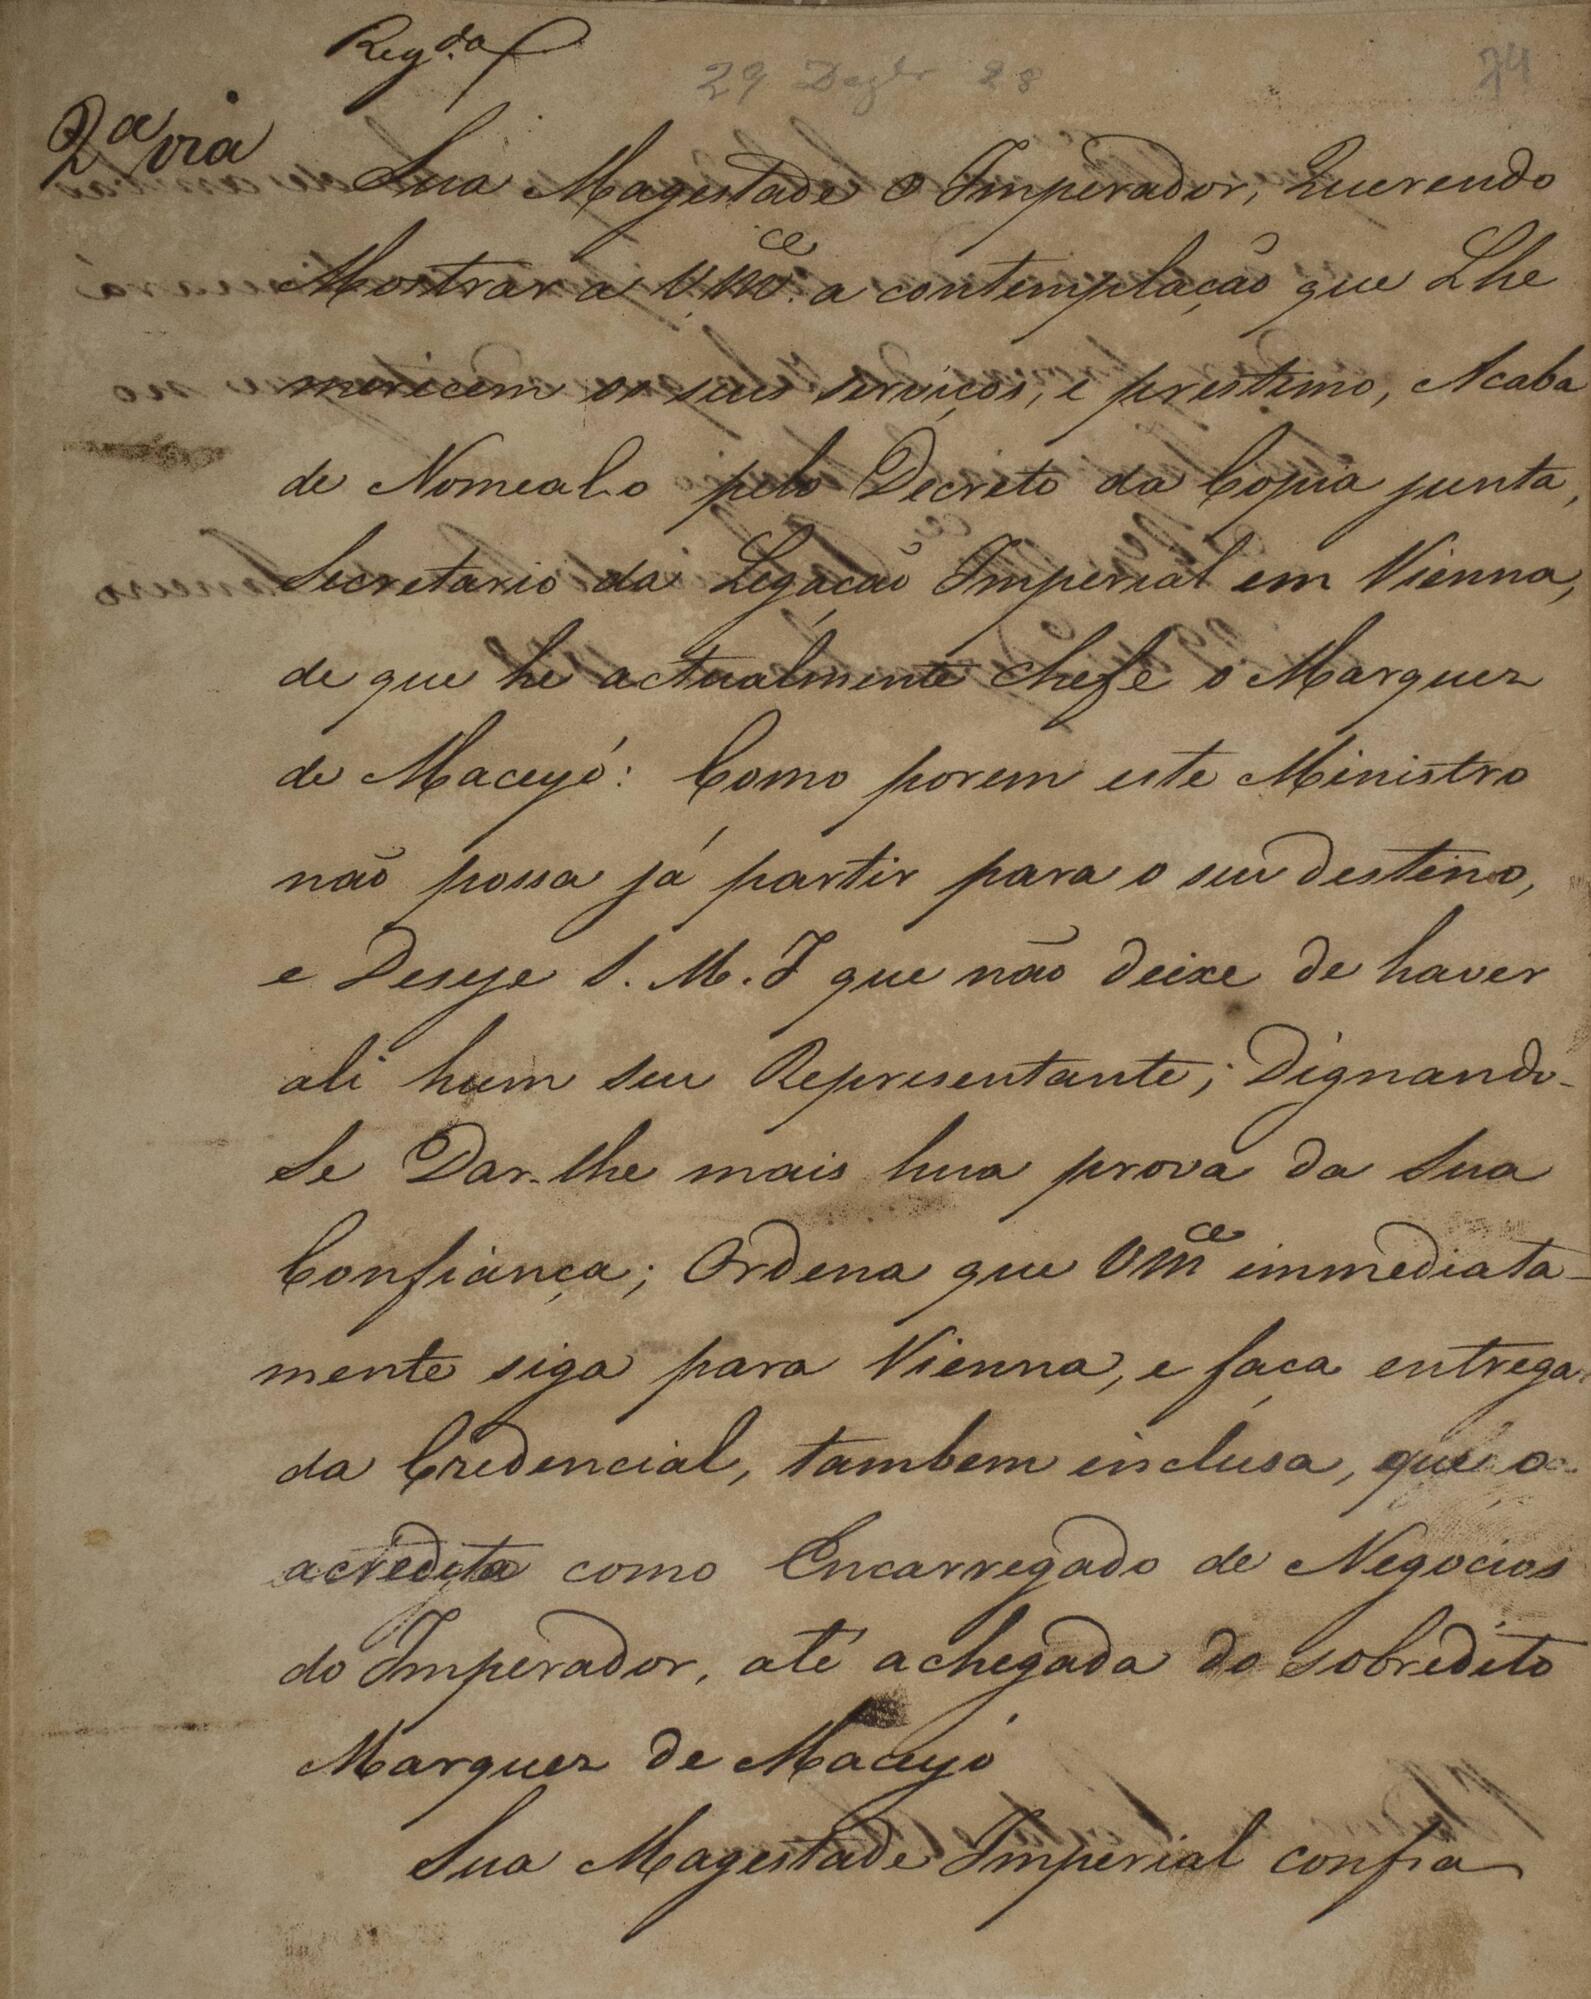 Reg.da
29 Dezbr 28
74
2a via
Sua Magestade o Imperador, Querendo
Mostrar a V.Mce. a contemplação que Lhe
merecem os seus serviços, e prestimo, Acaba
de Nomeal-o pelo Decreto da Copia junta,
Secretario da Legação Imperial em Vienna,
de que he actualmente chefe o Marquez
de Maceyó: Como porem este Ministro
não possa já partir para o seu destino,
e Deseje S. M. I que não deixe de haver
ali hum seu Representante; Dignando-
Se Dar-lhe mais hua prova da Sua
Confiança; Ordena que VMce immediata-
mente siga para Vienna, e faça entrega
da Credencial, tambem inclusa, que o
acredita como Encarregado de Negocios
do Imperador, até a chegada do sobredito
Marquez de Maceyó
Sua Magestade Imperial confia